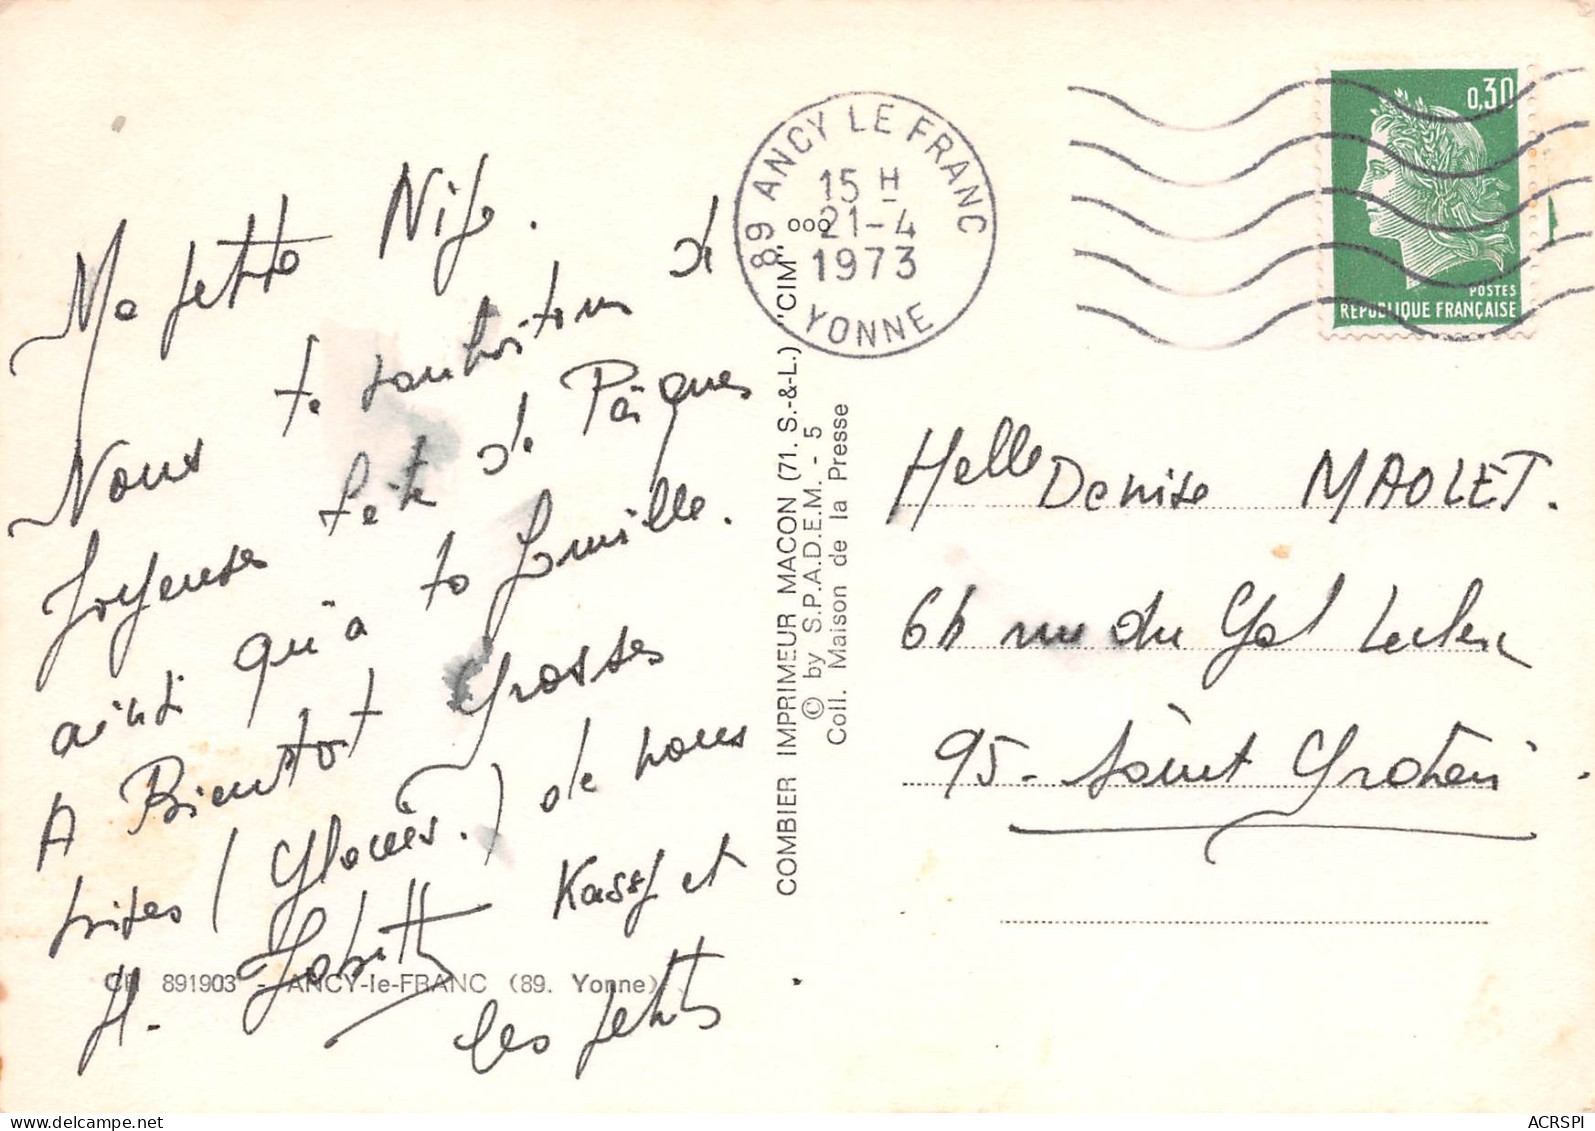 Ma petite Nife.
Nous te souhaitons de
Joyeuses fête de Pâques
ainsi qu'à ta famille.
A Bientot Grosses
bises (Glacés.) de nous
H. Kassy et
les petits
CP 891903 - ANCY-le-FRANC (89. Yonne)
COMBIER IMPRIMEUR MACON (71. S.-&-L.) "CIM"
© by S.P.A.D.E.M. - 5
Coll. Maison de la Presse
89 ANCY LE FRANC
15 H
21-4
1973
YONNE
0,30
POSTES
REPUBLIQUE FRANÇAISE
Melle Denise MAOLET.
64 rue du Gal Leclerc
95 - Saint Gratien.
ACRSPI